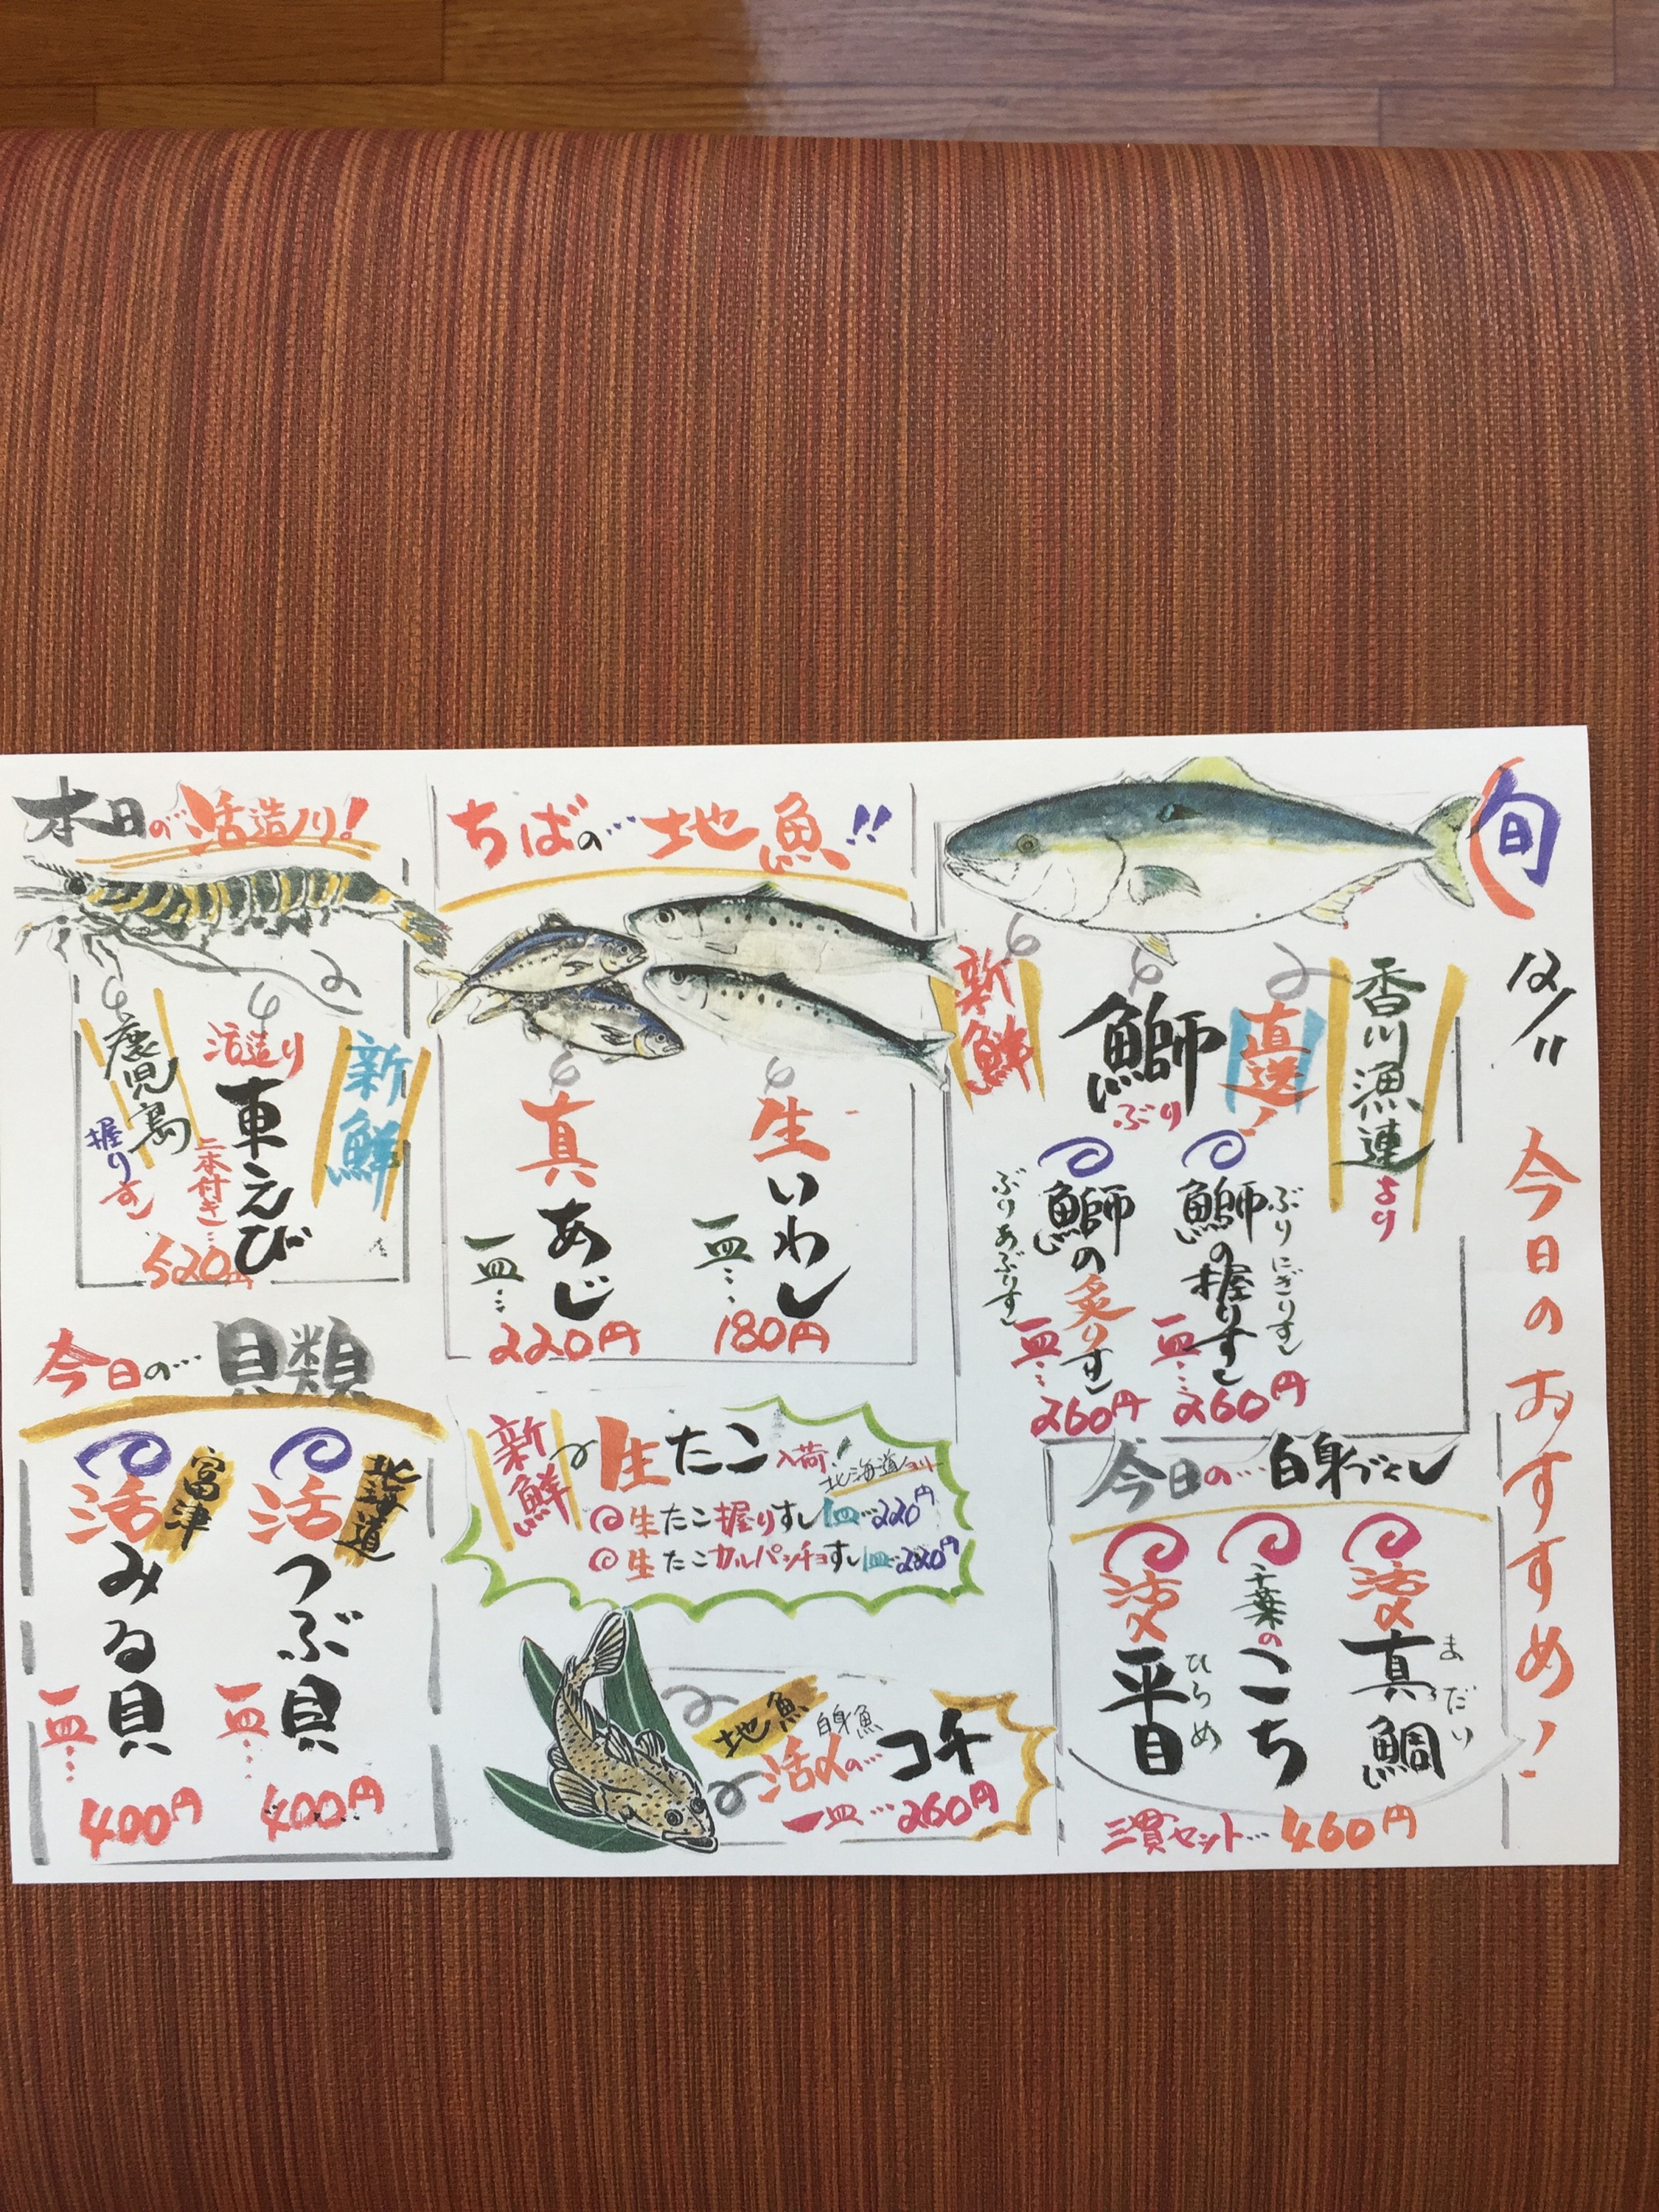 旬
12/11
今日のおすすめ!
香川漁連より
直送!
鰤
ぶり
新鮮
鰤の握りすし
ぶりにぎりすし
一皿…260円
鰤の炙りすし
ぶりあぶりすし
一皿…260円
今日の…白身づくし
活〆真鯛
まだい
千葉のこち
活〆平目
ひらめ
三貫セット…460円
ちばの…地魚!!
生いわし
一皿…180円
真あじ
一皿…220円
新鮮
生たこ入荷!
北海道より
生たこ握りすし一皿…220円
生たこカルパッチョすし一皿…220円
地魚
白身魚
活〆の…コチ
一皿…260円
本日の…活造り!
新鮮
活造り
車えび
二本付き…
520円
鹿児島
握りすし
今日の…貝類
北海道
活つぶ貝
一皿…400円
富津
活みる貝
一皿…400円